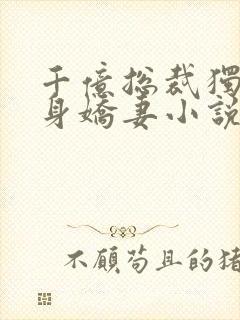 千億総裁獨
身嬌妻小說
不顧苟且的猪